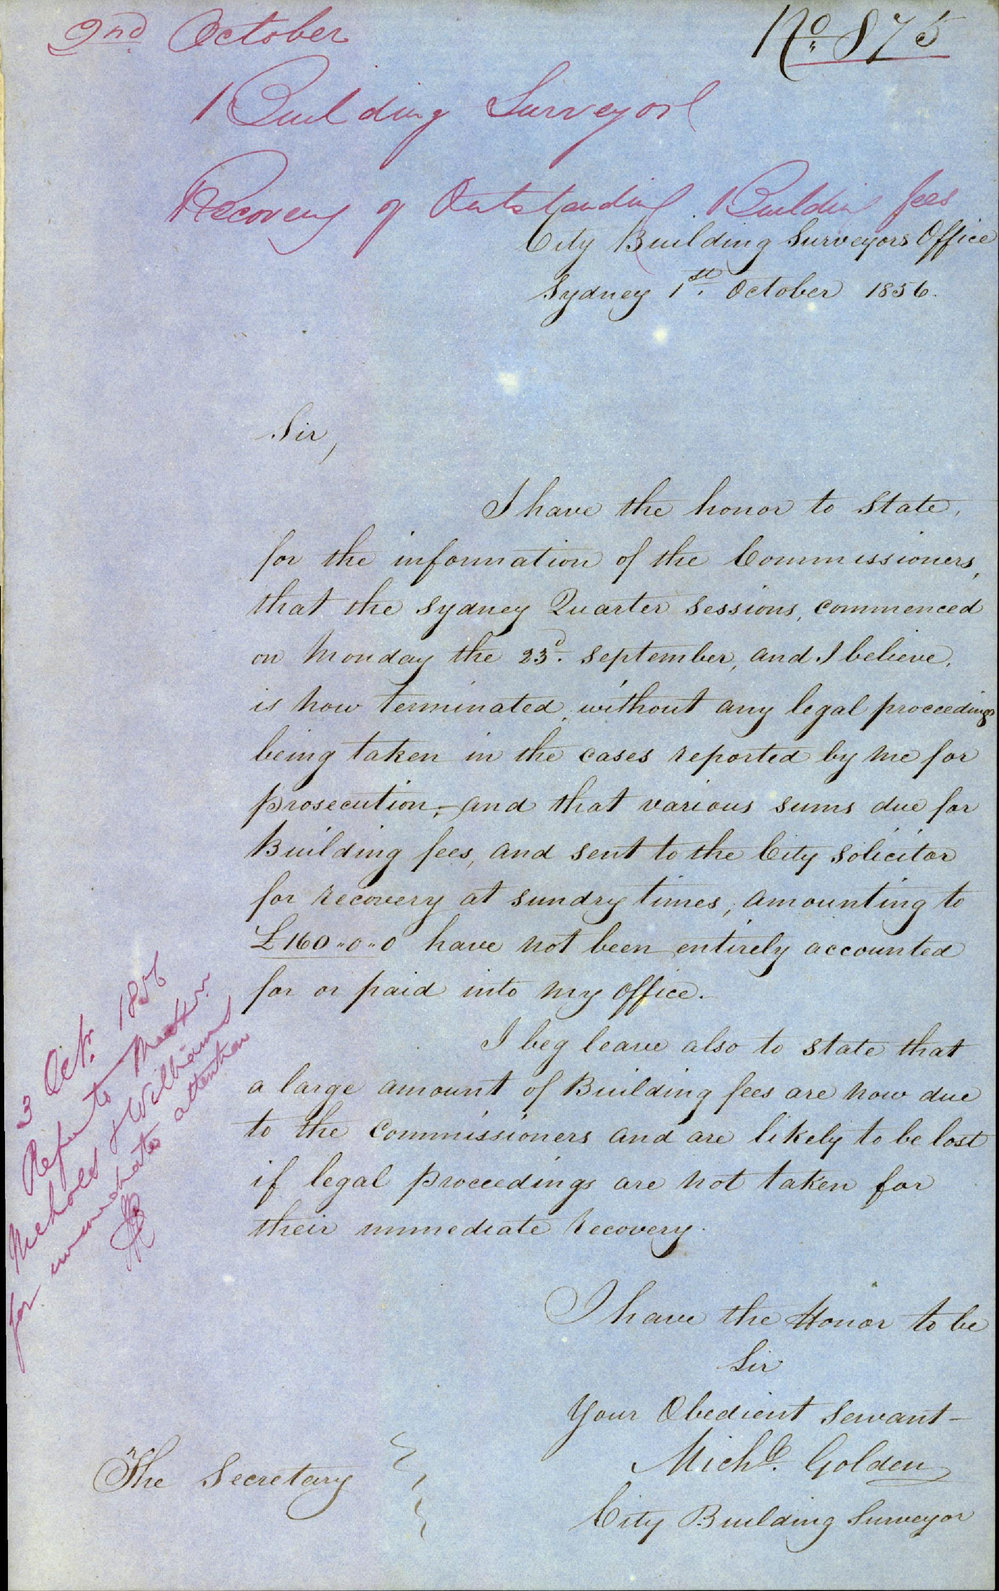 2nd October
No. 875
Building Surveyor
Recovery of Outstanding Building fees
City Building Surveyors Office
Sydney 1st. October 1856.
Sir,
I have the honor to state,
for the information of the Commissioners,
that the Sydney Quarter Sessions, commenced
on Monday the 23d. September, and I believe,
is now terminated, without any legal proceedings
being taken in the cases reported by me for
prosecution, and that various sums due for
Building fees, and sent to the City Solicitor
for recovery at sundry times, amounting to
£160..0..0 have not been entirely accounted
for or paid into my office.
I beg leave also to state that
a large amount of Building fees are now due
to the Commissioners and are likely to be lost
if legal proceedings are not taken for
their immediate recovery.
3 Oct. 1856
Refer to Messrs
Nichols & Williams
for immediate attention
I have the Honor to be
Sir
Your Obedient Servant
Michl. Golden
City Building Surveyor
The Secretary